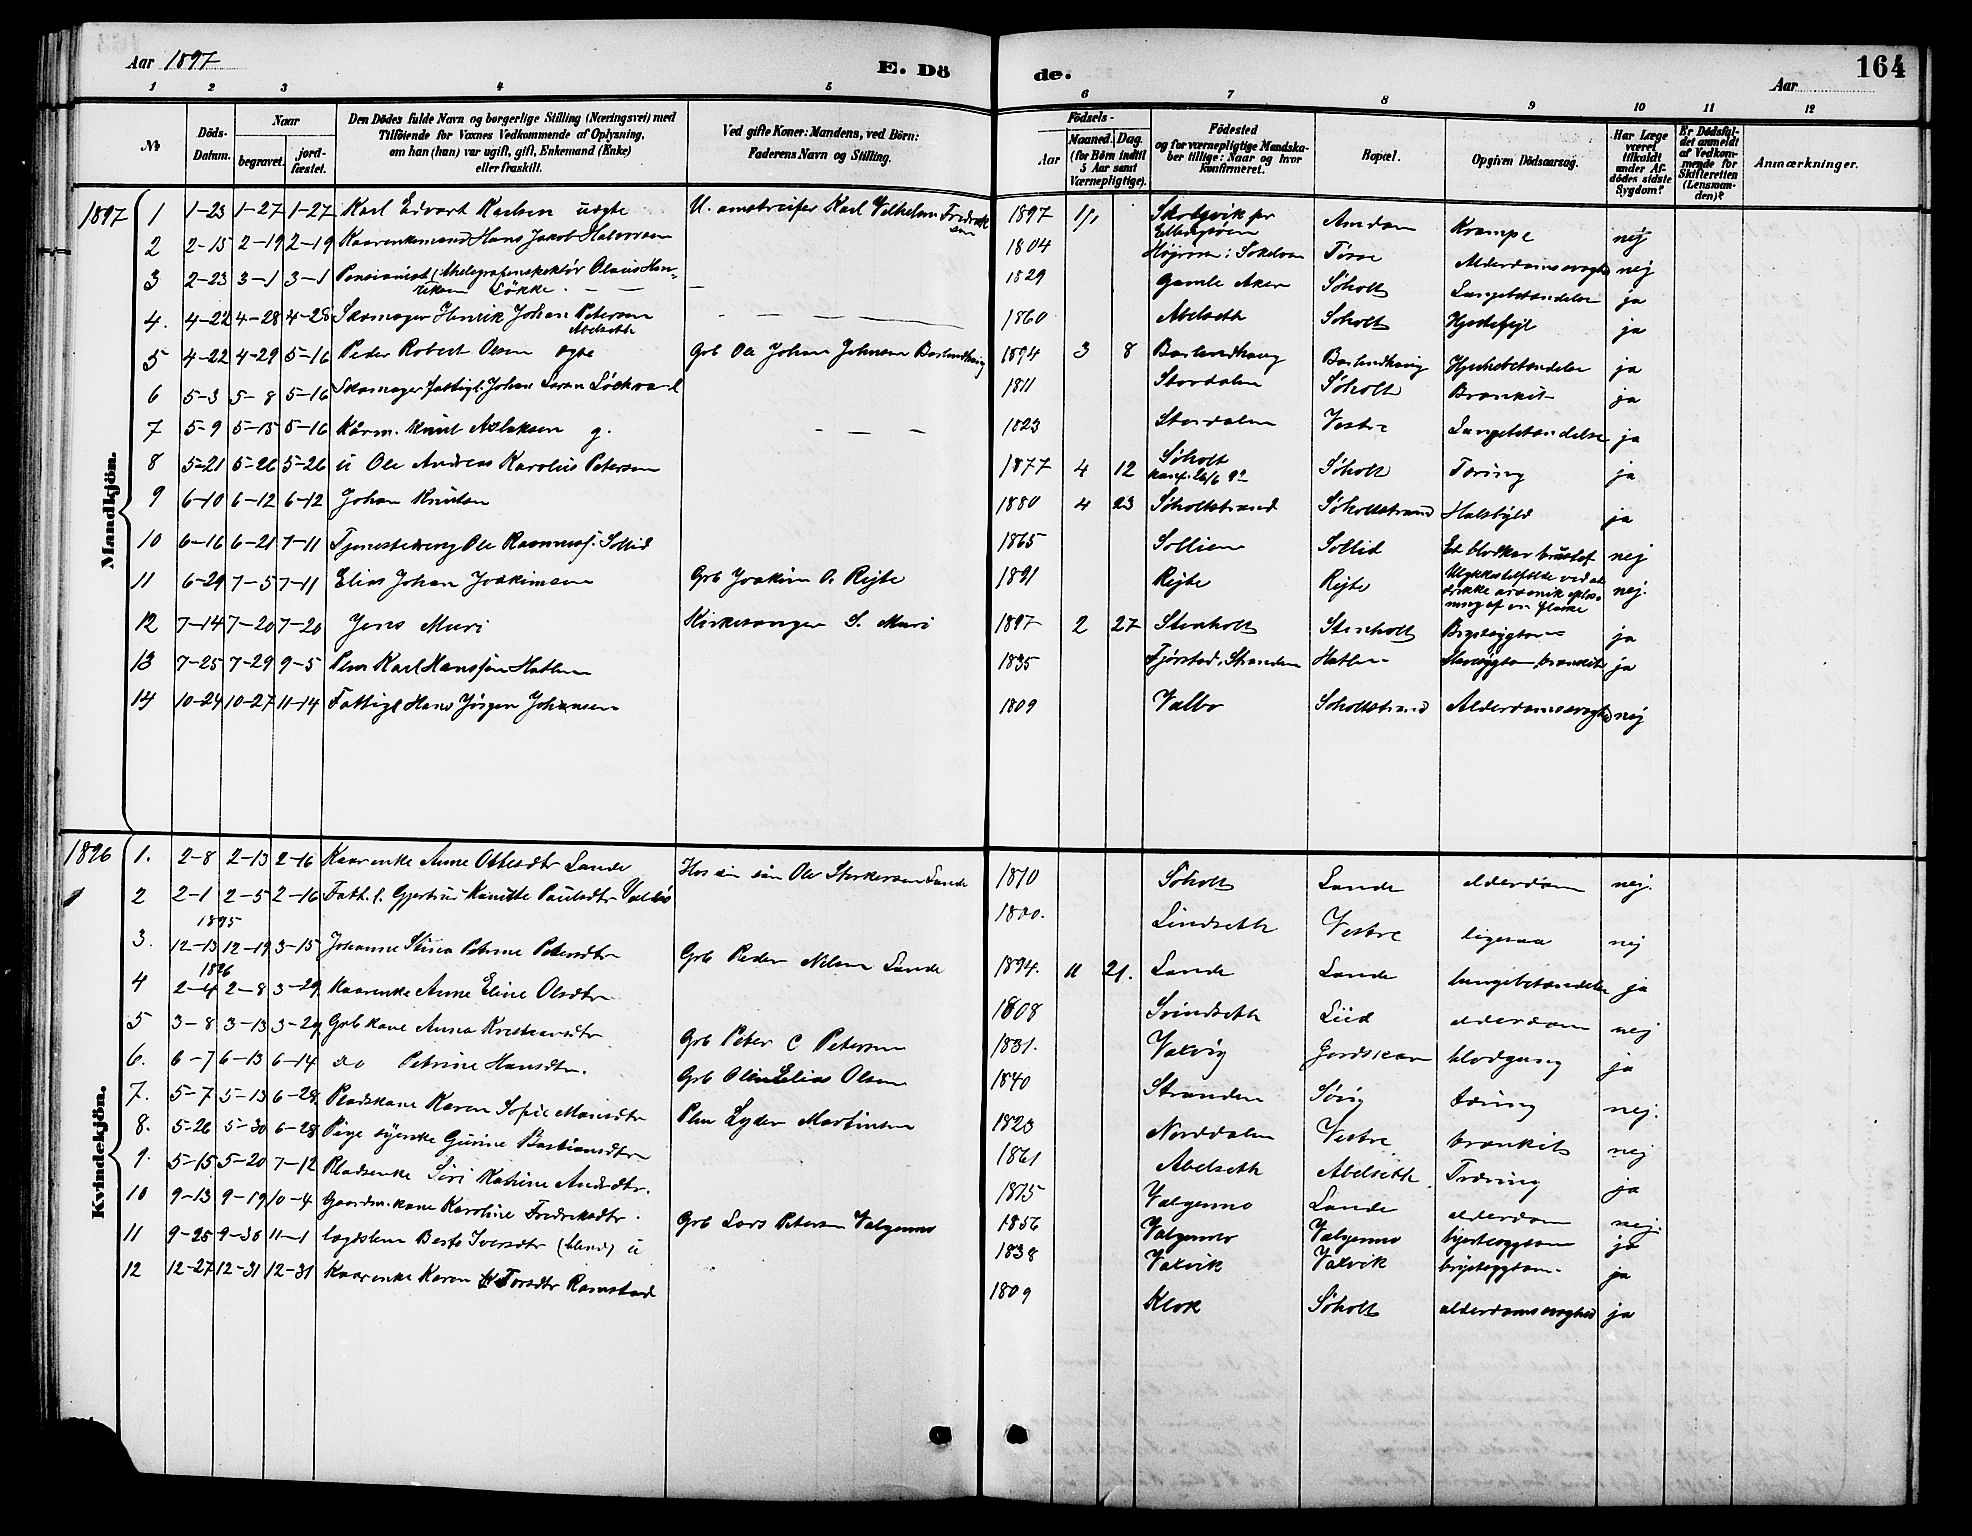 Aar 1897
E. Dö de.
Aar
164
1 2 3 4 5 6 7 8 9 10 11 12
No
Döds-Datum.
Naar
begravet.
jord-fæstet.
Den Dödes fulde Navn og borgerlige Stilling (Næringsvei) med
Tilföiende for Voxnes Vedkommende af Oplysning,
om han (hun) var ugift, gift, Enkemand (Enke)
eller fraskilt.
Ved gifte Koner: Mandens, ved Börn:
Faderens Navn og Stilling.
Födsels-
Aar
Maaned. Dag.
(for Börn indtil
5 Aar samt
Værnepligtige).
Födested
og for værnepligtige Mandska-
ber tillige: Naar og hvor
konfirmeret.
Bopæl.
Opgiven Dödsaarsag.
Har Læge
været
tilkaldt
under Af-
dödes sidste
Sygdom?
Er Dödsfal-
det anmeldt
af Vedkom-
mende for
Skifteretten
(Lensman-
den)?
Anmærkninger.
Mandkjön.
1897 1 1-23 1-27 1-27 Karl Edvart Karlsen uægte U. omstreifer Karl Vilhelm Fredriksen 1897 1/1 Amdam Krampe nej
2 2-15 2-19 2-19 Kaarenkemand Hans Jakob Halvorsen 1804 Alderdomssvaghed nej
3 2-23 3-1 3-1 Pensionist (Thelegrafinspektör Olaus Henriksen Løkke 1829 Gamle Aker Søholt Lungebetændelse ja
4. 4-22 4-28 4-28 Skomager Henrik Johan Petersen Abelseth 1860 Abelseth Søholt Hjertefejl ja
5 4-22 4-29 5-16 Peder Robert Olsen ægte Grb Ole Johan Johnsen 1894 3 8 Hjertebetændelse ja
6 5-3 5-8 5-16 Skomager fattigl. Johan 1811 Stordalen Søholt Bronkit ja
7 5-9 5-15 5-16 Kårm. Knut Aslaksen g. 1823 Stordalen Vestre Lungebetændelse ja
8 5-21 5-26 5-26 u Ole Andreas Karolius Petersen 1877 4 12 Søholt Søholt Tæring ja
9 6-10 6-12 6-12 Johan Knutsen 1880 4 23 Søholtstrand Søholtstrand Halsbyld ja
10 6-16 6-21 7-11 Tjenestedreng Ole Rasmussen Sollid 1865 Sollien Sollid Et blodkar bristet nej
11 6-29 7-5 7-11 Elias Johan Joakimsen Grb Joakim O. Rejte 1891 Rejte Rejte Ulykkestilfælde ved at drikke arsenik opløsning af en flaske nej.
12 7-14 7-20 7-20 Jens Muri Kirkesanger S. Muri 1897 2 27 Stenholt Stenholt Brystsygdom ja
13 7-25 7-29 9-5 Plm Karl Hanssen Hatlen 1835 Fjørstad, Stranden Hatlen bronkit ja
14 10-24 10-27 11-14 Fattigl Hans Jørgen Johansen 1809 Valbo Søholtstrand Alderdomssvaghed nej
Kvindekjön.
1896 1. 2-8 2-13 2-16 Kaarenke Anne Ottesdtr Lande Hos sin søn Ole Sterkersen Lande 1810 Søholt Lande alderdom nej.
2 2-1 2-5 2-16 Fatt. l. Gjertine Knutte Paulsdtr 1800. Lindseth Vestre ligesaa nej
1895
3. 12-13 12-19 3-15 Johanne Stina Petrine Petersdtr Grb Peder Nelsen Lande 1894. 11 21. Lande Lande lungebetændelse ja
1896
4 2-4 2-8 3-29 Kaarenke Anne Eline Olsdtr 1808 Svindseth Liid alderdom nej
5 3-8 3-13 3-29 Grb kone Anna Kristiansdtr Grb Peter C Petersen 1831. Valvig blodgang ja
6. 6-7 6-13 6-14 do Petrine Hansdtr. Grb Elias Olsen 1840 Stranden Søvig tæring nej.
7. 5-7 5-13 6-28 Pladskone Karen Sofie Monsdtr Plm Lyder Martinsen 1823 Norddalen Vestre bronkit nej
8. 5-26 5-30 6-28 Pige syerske Gurine Bastiansdtr 1861 Abelseth Abelseth Tæring ja
9. 5-15 5-20 7-12 Pladsenke Siri Katrine Andrdtr. 1815 Valgermo Lande alderdom nej.
10 9-13 9-19 10-4 Gaardm.kone Karoline Fredriksdtr. Grb Lars Petersen Valgermo 1856 Valgermo Valgermo hjertesygdom ja
11 9-25 9-30 11-1 lægdslem Berte Iversdtr (blind) u 1838 Valvik Valvik brystsygdom ja
12 12-27 12-31 12-31 Kaarenke Karen Torsdtr Ramstad 1809 Klok Søholt alderdomssvaghed ja